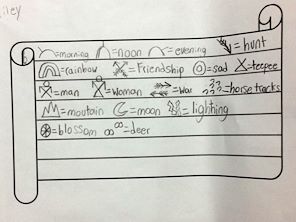 iley
=morning =noon =evening =hunt
=rainbow =Friendship =sad =teepee
=man =woman =war =horse tracks
=moutain =moon =lighting
=blossom =deer